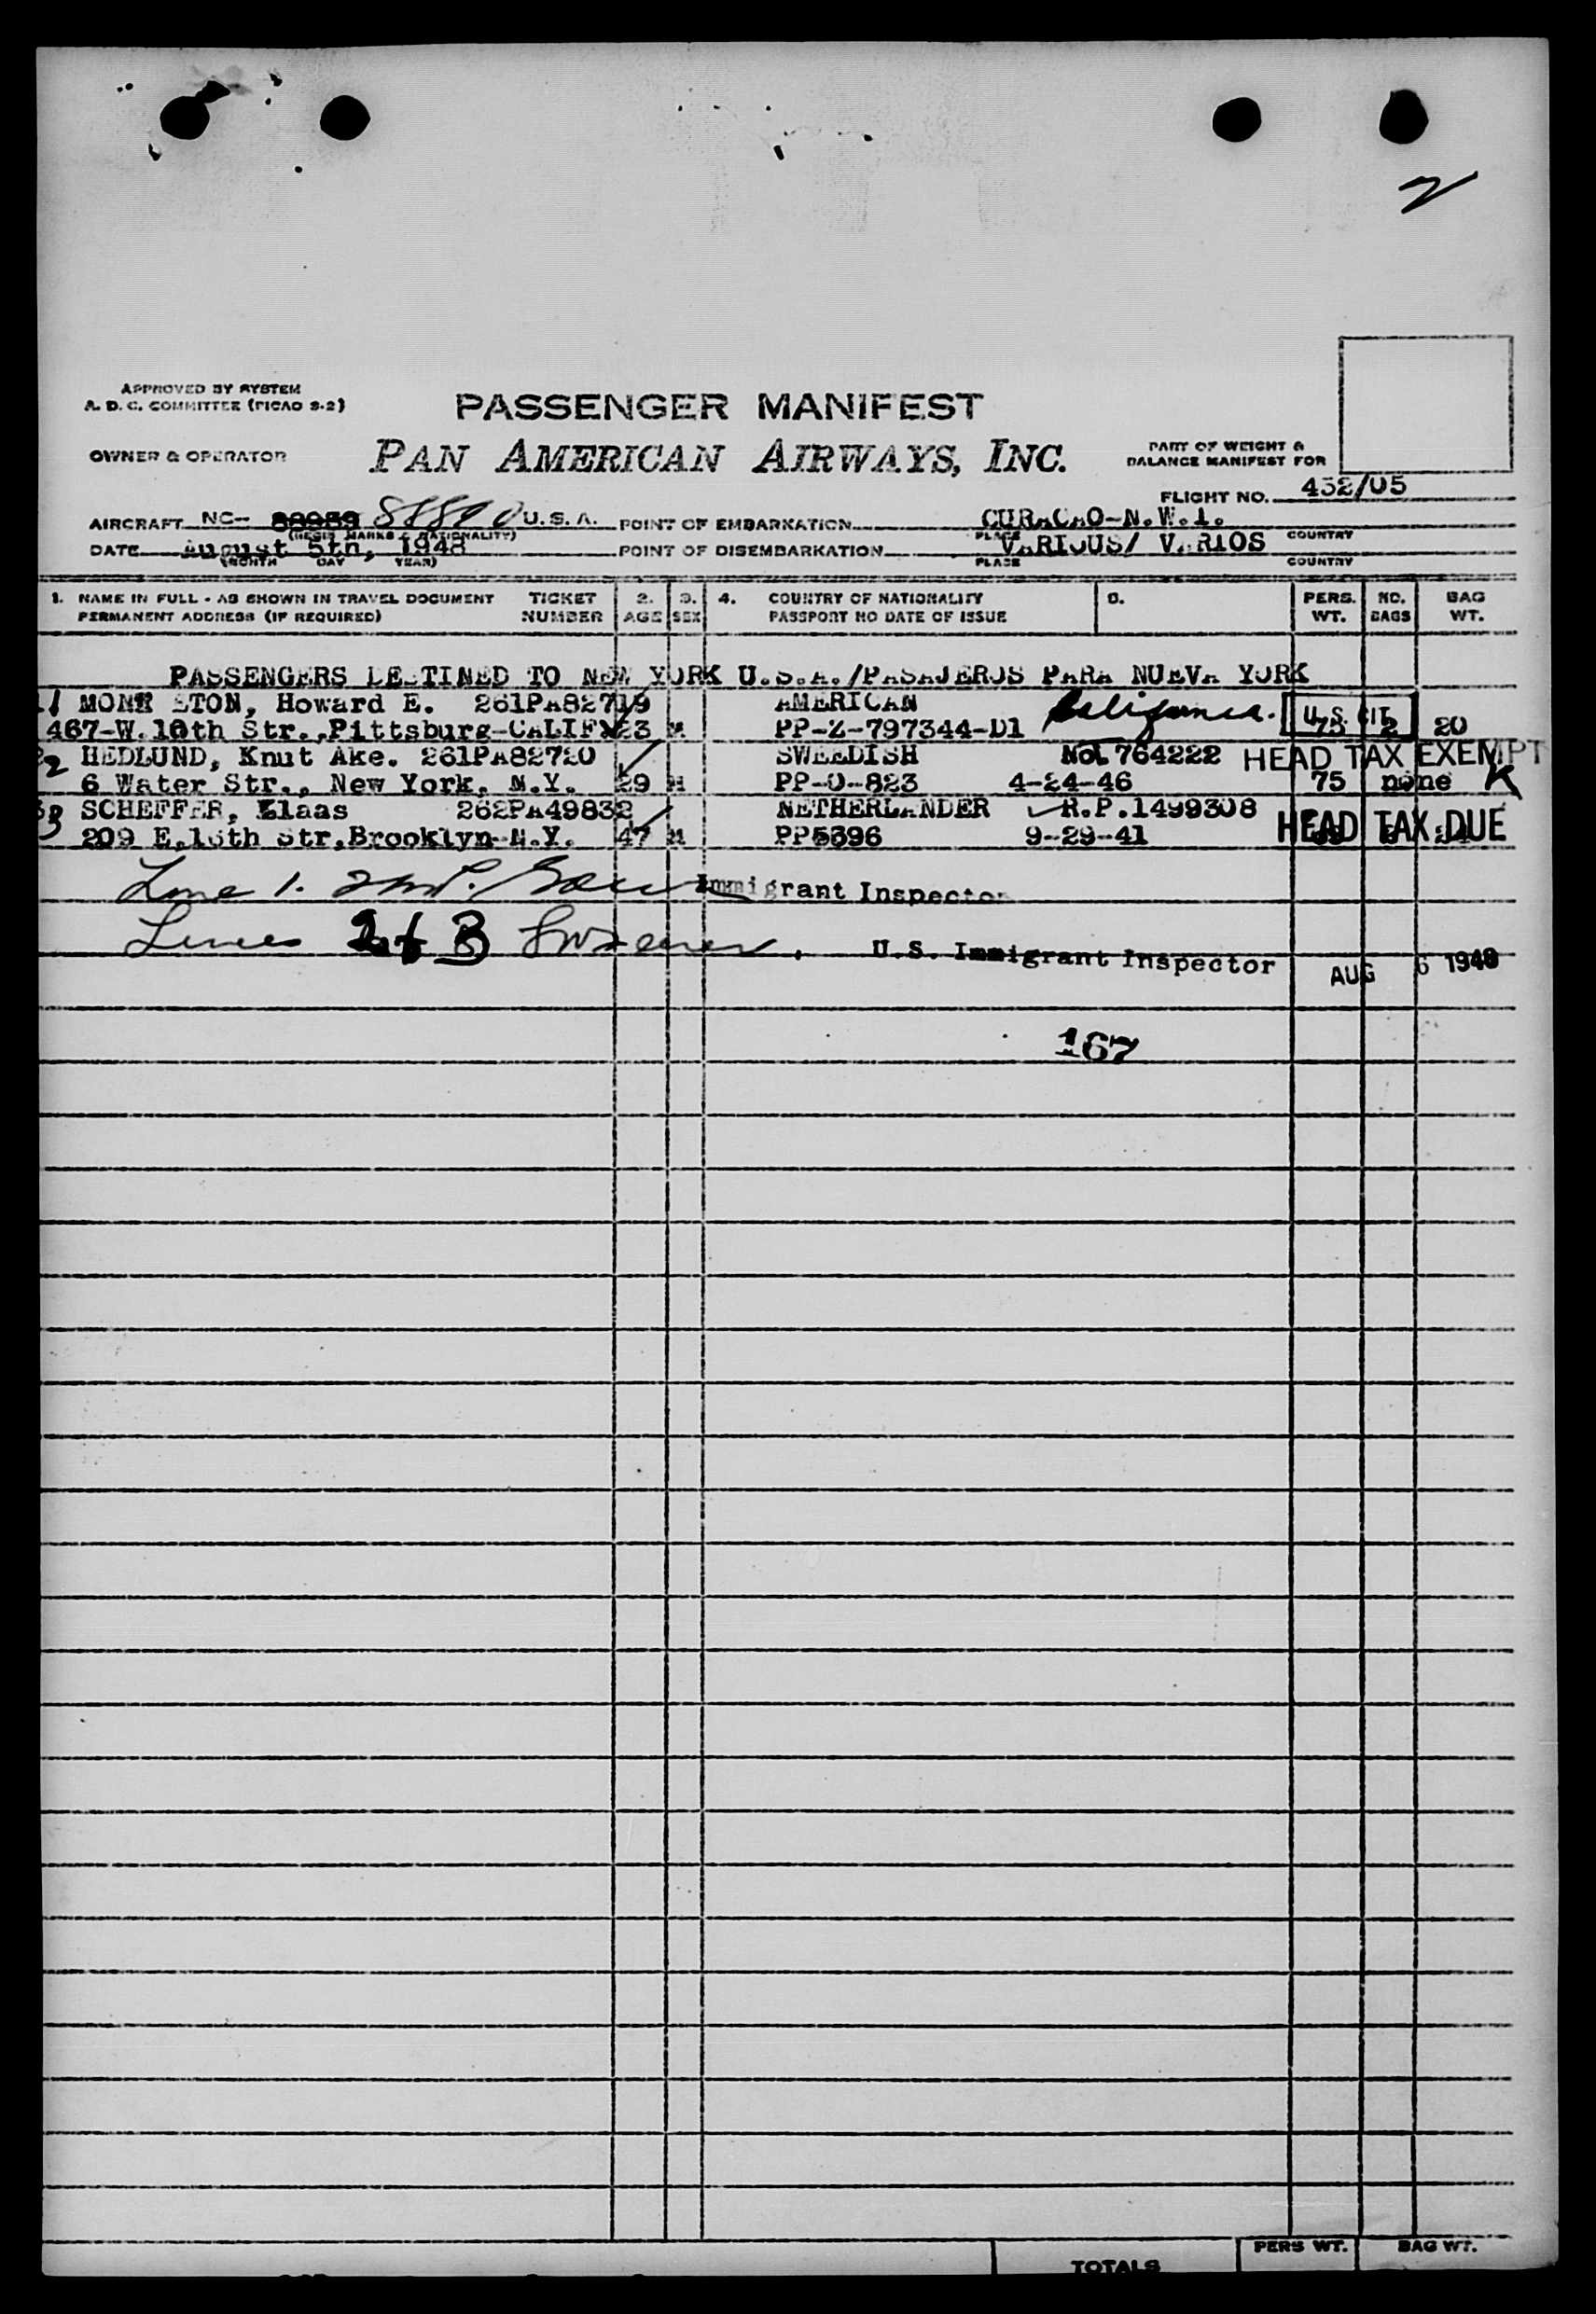 2
APPROVED BY SYSTEM
A. D. C. COMMITTEE (PICAO S-2)
PASSENGER MANIFEST
OWNER & OPERATOR
PAN AMERICAN AIRWAYS, INC.
PART OF WEIGHT &
BALANCE MANIFEST FOR
FLIGHT NO. 432/05
AIRCRAFT NC- 88959 U.S.A. POINT OF EMBARKATION CURACAO-N.W.I.
(REGIS MARKS & NATIONALITY) PLACE COUNTRY
DATE August 5th, 1948 POINT OF DISEMBARKATION VARIOUS/ VARIOS
(MONTH DAY YEAR) PLACE COUNTRY
1. NAME IN FULL - AS SHOWN IN TRAVEL DOCUMENT TICKET 2. 3. 4. COUNTRY OF NATIONALITY 5. PERS. NO. BAG
PERMANENT ADDRESS (IF REQUIRED) NUMBER AGE SEX PASSPORT NO DATE OF ISSUE WT. BAGS WT.
PASSENGERS DESTINED TO NEW YORK U.S.A./PASAJEROS PARA NUEVA YORK
1 Howard E. 261PA82719 AMERICAN California. U.S. CIT
467-W.10th Str.,Pittsburg-CALIF 23 M PP-Z-797344-D1 75 2 20
2 HEDLUND, Knut Ake. 261PA82720 SWEEDISH No. 764222 HEAD TAX EXEMPT
6 Water Str., New York, N.Y. 29 M PP-O-823 4-24-46 75 none K
3 SCHEFFER, Klaas 262PA49832 NETHERLANDER R.P.1499308
209 E.16th Str,Brooklyn-N.Y. 47 M PP5396 9-29-41 HEAD TAX DUE
Line 1. Immigrant Inspector
Lines 2 & 3 U.S. Immigrant Inspector AUG 6 1948
167
TOTALS PERS WT. BAG WT.